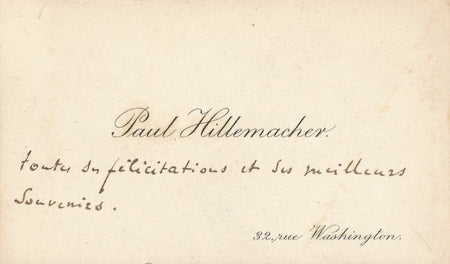 Paul Hillemacher.
toutes ses félicitations et ses meilleurs
souvenirs.
32, rue Washington.